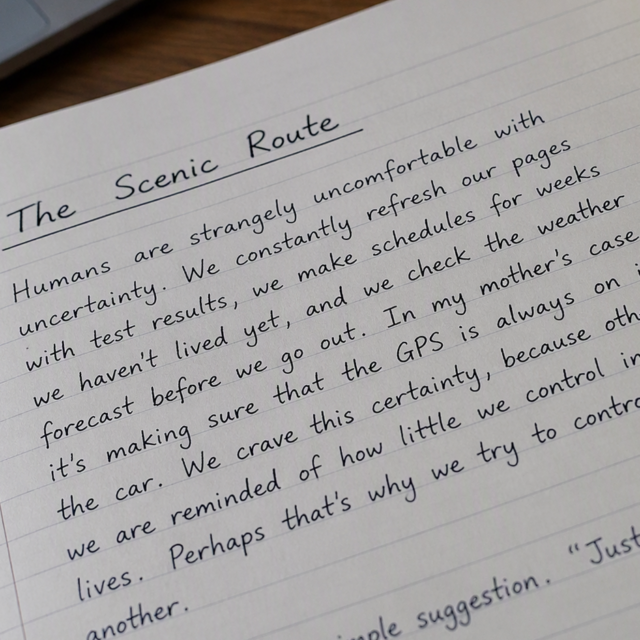 The Scenic Route
Humans are strangely uncomfortable with
uncertainty. We constantly refresh our pages
with test results, we make schedules for weeks
we haven't lived yet, and we check the weather
forecast before we go out. In my mother's case
it's making sure that the GPS is always on
the car. We crave this certainty, because
we are reminded of how little we control
lives. Perhaps that's why we try to
another.
suggestion. "Just